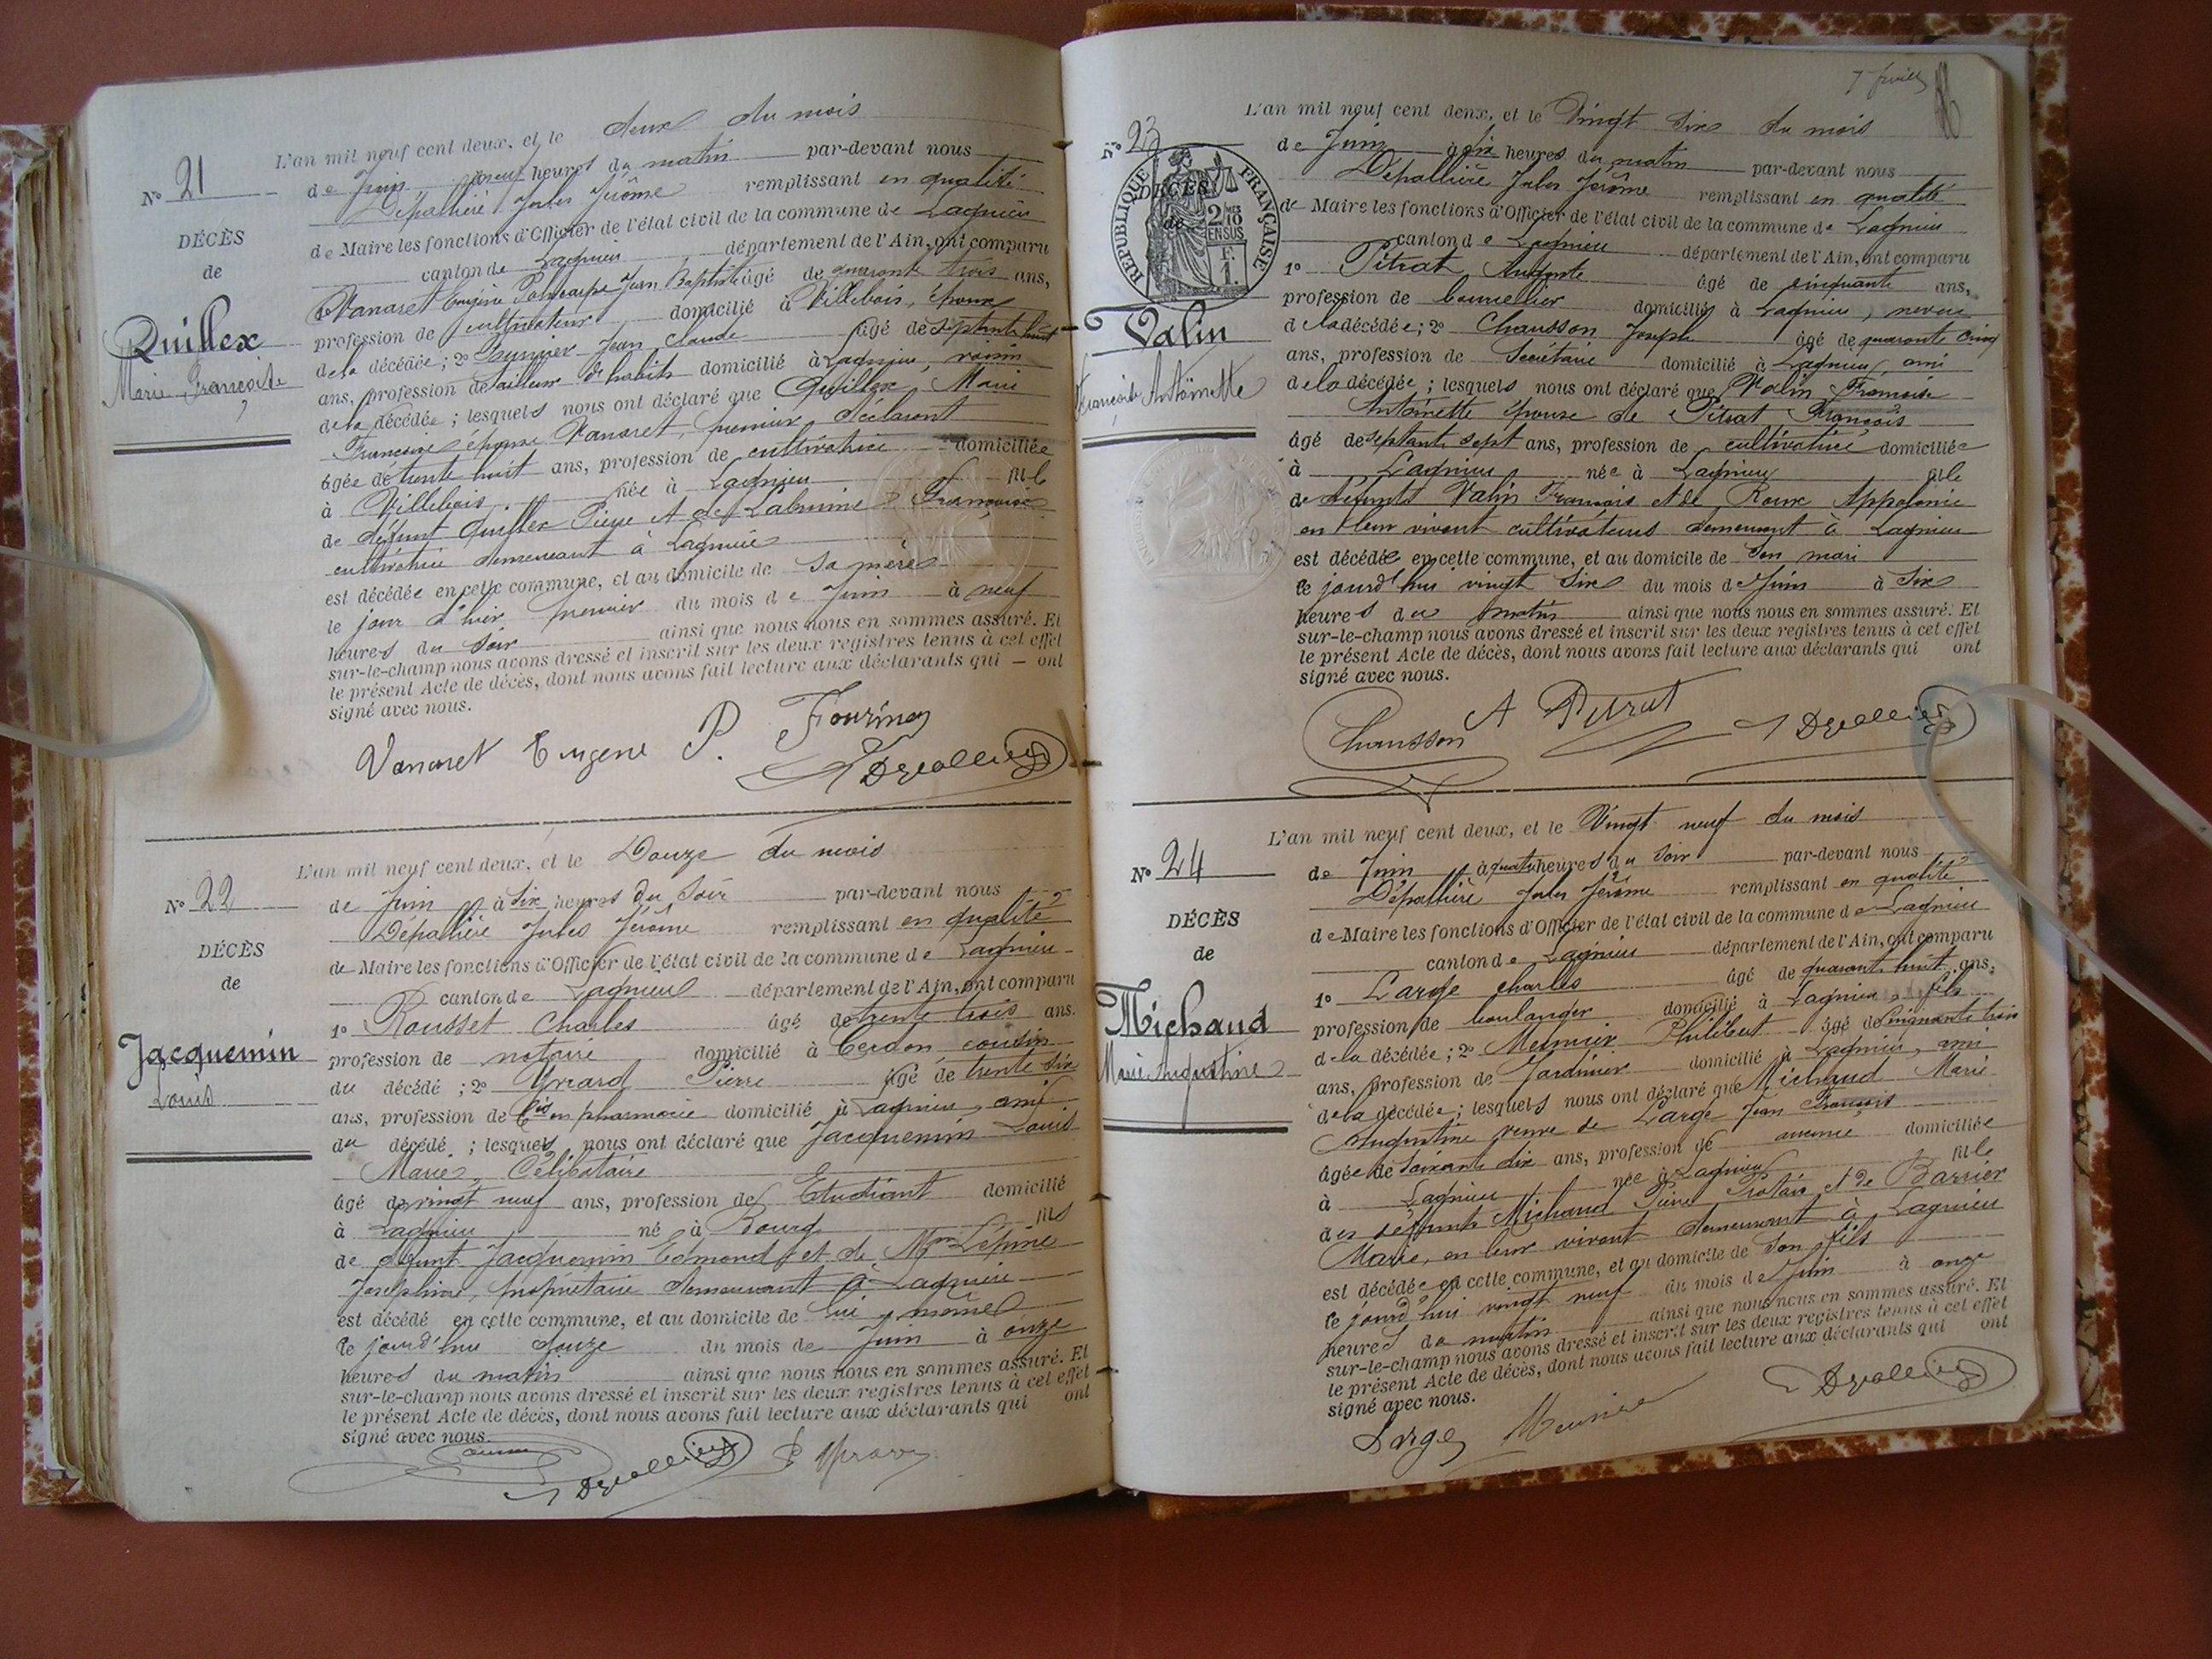 L'an mil neuf cent deux, et le deux du mois
No 21
de Juin à neuf heures du matin par-devant nous
Dépallière Jules Jérôme remplissant en qualité
DÉCÈS
de Maire les fonctions d'Officier de l'état civil de la commune de Lagnieu
de
canton de Lagnieu département de l'Ain, ont comparu
Vanaret Eugène Polycarpe Jean Baptiste âgé de quarante trois ans,
Quillex
profession de cultivateur domicilié à Villebois, époux
Marie Françoise
de la décédée; 2o Jean Claude âgé de septante huit
ans, profession de tailleur d'habits domicilié à Lagnieu, voisin
de la décédée; lesquels nous ont déclaré que Quillex Marie
Françoise épouse Vanaret, premier déclarant
âgée de trente huit ans, profession de cultivatrice domiciliée
à Villebois née à Lagnieu fille
de défunt Quillex Pierre et de Françoise
cultivatrice demeurant à Lagnieu
est décédée en cette commune, et au domicile de sa mère
le jour d'hier premier du mois de Juin à neuf
heures du soir ainsi que nous nous en sommes assuré. Et
sur-le-champ nous avons dressé et inscrit sur les deux registres tenus à cet effet
le présent Acte de décès, dont nous avons fait lecture aux déclarants qui – ont
signé avec nous.
Vanaret Eugène P.
L'an mil neuf cent deux, et le Douze du mois
No 22
de Juin à six heures du soir par-devant nous
Dépallière Jules Jérôme remplissant en qualité
DÉCÈS
de Maire les fonctions d'Officier de l'état civil de la commune de Lagnieu
de
canton de Lagnieu département de l'Ain, ont comparu
1o Rousset Charles âgé de trente trois ans.
Jacquemin
profession de notaire domicilié à Cerdon cousin
Louis
du décédé; 2o Pierre âgé de trente six
ans, profession de en pharmacie domicilié à Lagnieu, ami
du décédé; lesquels nous ont déclaré que Jacquemin Louis
Marie, Célibataire
âgé de vingt neuf ans, profession de Etudiant domicilié
à Lagnieu né à Bourg fils
de défunt Jacquemin Edmond et de Lépine
Joséphine, propriétaire demeurant à Lagnieu
est décédé en cette commune, et au domicile de lui même
le jourd'hui douze du mois de Juin à onze
heures du matin ainsi que nous nous en sommes assuré. Et
sur-le-champ nous avons dressé et inscrit sur les deux registres tenus à cet effet
le présent Acte de décès, dont nous avons fait lecture aux déclarants qui ont
signé avec nous.
7
L'an mil neuf cent deux, et le Vingt six du mois
No 23
de Juin à dix heures du matin par-devant nous
Dépallière Jules Jérôme remplissant en qualité
RÉPUBLIQUE FRANÇAISE
DÉCÈS
de
de Maire les fonctions d'Officier de l'état civil de la commune de Lagnieu
canton de Lagnieu département de l'Ain, ont comparu
1o Pitrat Auguste âgé de cinquante ans,
profession de domicilié à Lagnieu, neveu
Valin
Françoise Antoinette
de la décédée; 2o Chausson Joseph âgé de quarante cinq
ans, profession de Secrétaire domicilié à Lagnieu, ami
de la décédée; lesquels nous ont déclaré que Valin Françoise
Antoinette épouse de Pitrat François
âgé de septante sept ans, profession de cultivatrice domiciliée
à Lagnieu née à Lagnieu fille
de défunts Valin François et de Roux Appolonie
en leur vivant cultivateurs demeurant à Lagnieu
est décédée en cette commune, et au domicile de son mari
le jourd'hui vingt six du mois de Juin à six
heures du matin ainsi que nous nous en sommes assuré. Et
sur-le-champ nous avons dressé et inscrit sur les deux registres tenus à cet effet
le présent Acte de décès, dont nous avons fait lecture aux déclarants qui ont
signé avec nous.
Chausson A Pitrat
L'an mil neuf cent deux, et le Vingt neuf du mois
No 24
de Juin à quatre heures du soir par-devant nous
Dépallière Jules Jérôme remplissant en qualité
DÉCÈS
de Maire les fonctions d'Officier de l'état civil de la commune de Lagnieu
de
canton de Lagnieu département de l'Ain, ont comparu
1o Large Charles âgé de quarante huit ans,
Michaud
profession de boulanger domicilié à Lagnieu, fils
Marie Augustine
de la décédée; 2o Meunier Philibert âgé de cinquante trois
ans, profession de Jardinier domicilié à Lagnieu, ami
de la décédée; lesquels nous ont déclaré que Michaud Marie
Augustine veuve de Large Jean François
âgée de soixante dix ans, profession de aucune domiciliée
à Lagnieu née à Lagnieu fille
des défunts Michaud Pierre et de Barrier
Marie, en leur vivant demeurant à Lagnieu
est décédée en cette commune, et au domicile de son fils
le jourd'hui vingt neuf du mois de Juin à onze
heures du matin ainsi que nous nous en sommes assuré. Et
sur-le-champ nous avons dressé et inscrit sur les deux registres tenus à cet effet
le présent Acte de décès, dont nous avons fait lecture aux déclarants qui ont
signé avec nous.
Large Meunier